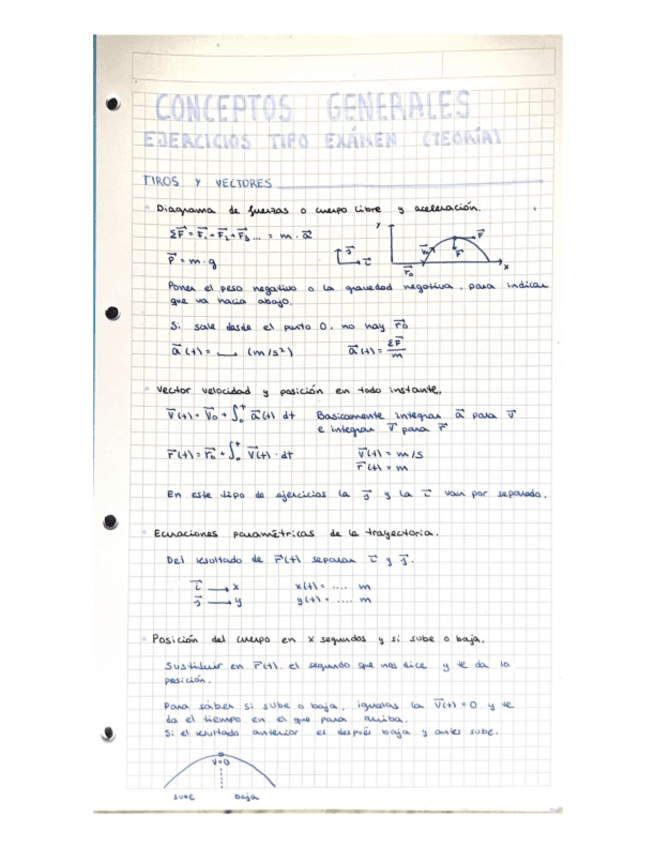 CONCEPTOS GENERALES
EJERCICIOS TIPO EXÁMEN (TEORÍA)
TIROS Y VECTORES
Diagrama de fuerzas o cuerpo libre y aceleración.
ΣF⃗ = F⃗₁ + F⃗₂ + F⃗₃ ... = m · a⃗
P⃗ = m · g
j⃗ i⃗
y x V⃗₀ r⃗₀ P⃗ F⃗
Poner el peso negativo o la gravedad negativa, para indicar
que va hacia abajo.
Si sale desde el punto 0, no hay r⃗₀
a⃗(t) = (m/s²) a⃗(t) = ΣF⃗/m
Vector velocidad y posición en todo instante.
V⃗(t) = V⃗₀ + ∫₀ᵗ a⃗(t) dt Basicamente integrar a⃗ para v⃗
e integrar v⃗ para r⃗
r⃗(t) = r⃗₀ + ∫₀ᵗ V⃗(t) · dt V⃗(t) = m/s
r⃗(t) = m
En este tipo de ejercicios la j⃗ y la i⃗ van por separado.
Ecuaciones paramétricas de la trayectoria.
Del resultado de r⃗(t) separar i⃗ y j⃗.
i⃗ → x x(t) = .... m
j⃗ → y y(t) = .... m
Posición del cuerpo en x segundos y si sube o baja.
Sustituir en r⃗(t) el segundo que nos dice y te da la
posición.
Para saber si sube o baja, igualas la V⃗(t) = 0 y te
da el tiempo en el que para arriba.
Si el resultado anterior es después baja y antes sube.
V=0
sube baja